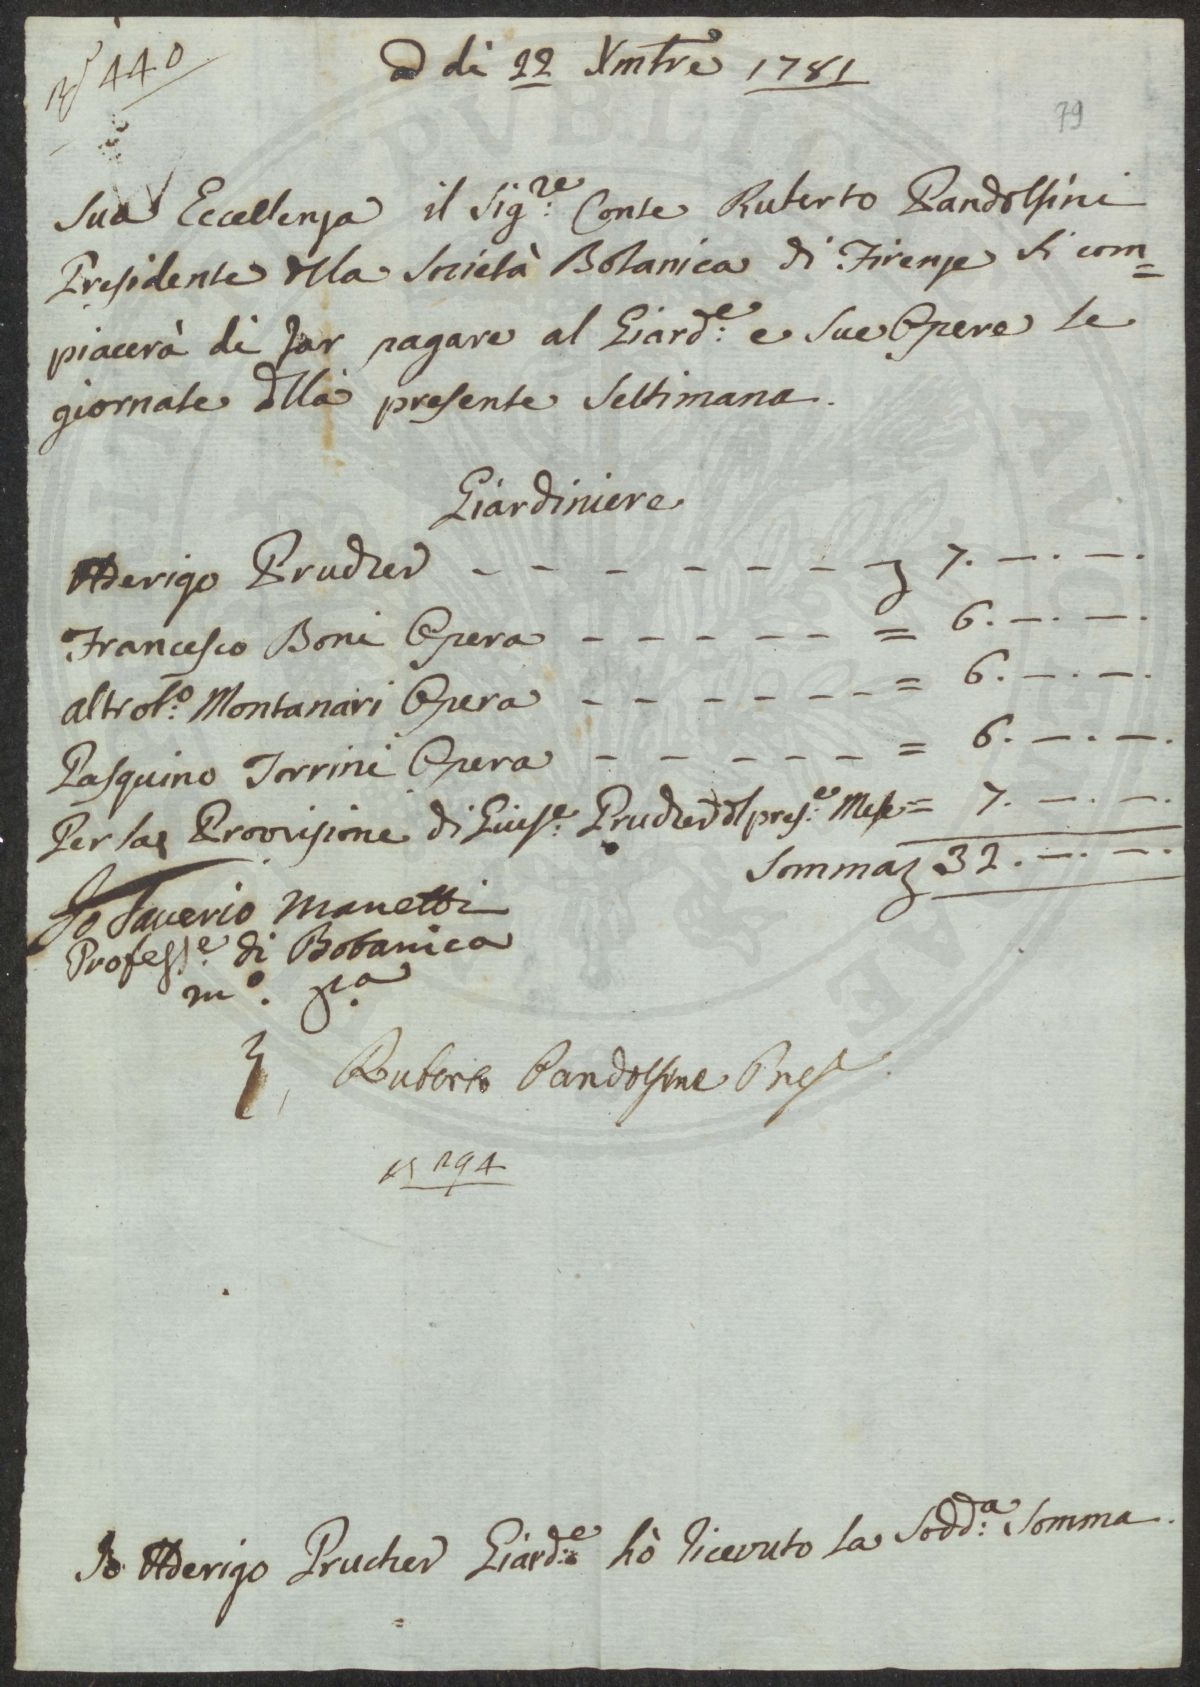 N.° 440
a di 22 Xmbre 1781
79
Sua Eccellenza il Sig:re Conte Ruberto Pandolfini
Presidente dlla Società Botanica di Firenze si com=
piacerà di far pagare al Giard:e e Sue Opere le
giornate dlla presente Settimana.
Giardiniere
Aderigo Prucher - - - - - - - - 7. —. —.
Francesco Boni Opera - - - - - - = 6. —. —.
altro Montanari Opera - - - - - - = 6. —. —.
Pasquino Torrini Opera - - - - - - = 6. —. —.
Per la Provvisione di Giuse: Prucher dl pres:e Mese = 7. —. —.
Somma 32. —. —.
Io Saverio Manetti
Profess:e di Botanica
m.° p.a
Ruberto Pandolfini Pres
294
Io Aderigo Prucher Giard:e hò ricevuto la Sodd:a Somma.
PVBLIC